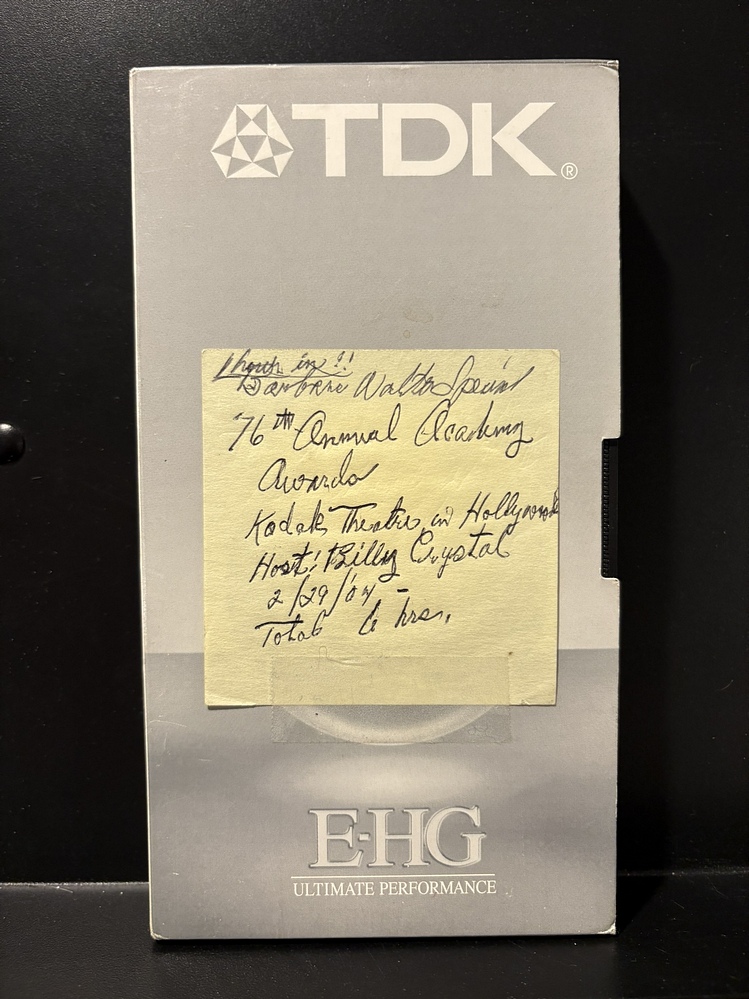 TDK®
1 hour in !!
Barbara Walter Special
76th Annual Academy
Awards
Kodak Theatre in Hollywood
Host: Billy Crystal
2/29/04 -
Total 6 hrs.
E-HG
ULTIMATE PERFORMANCE